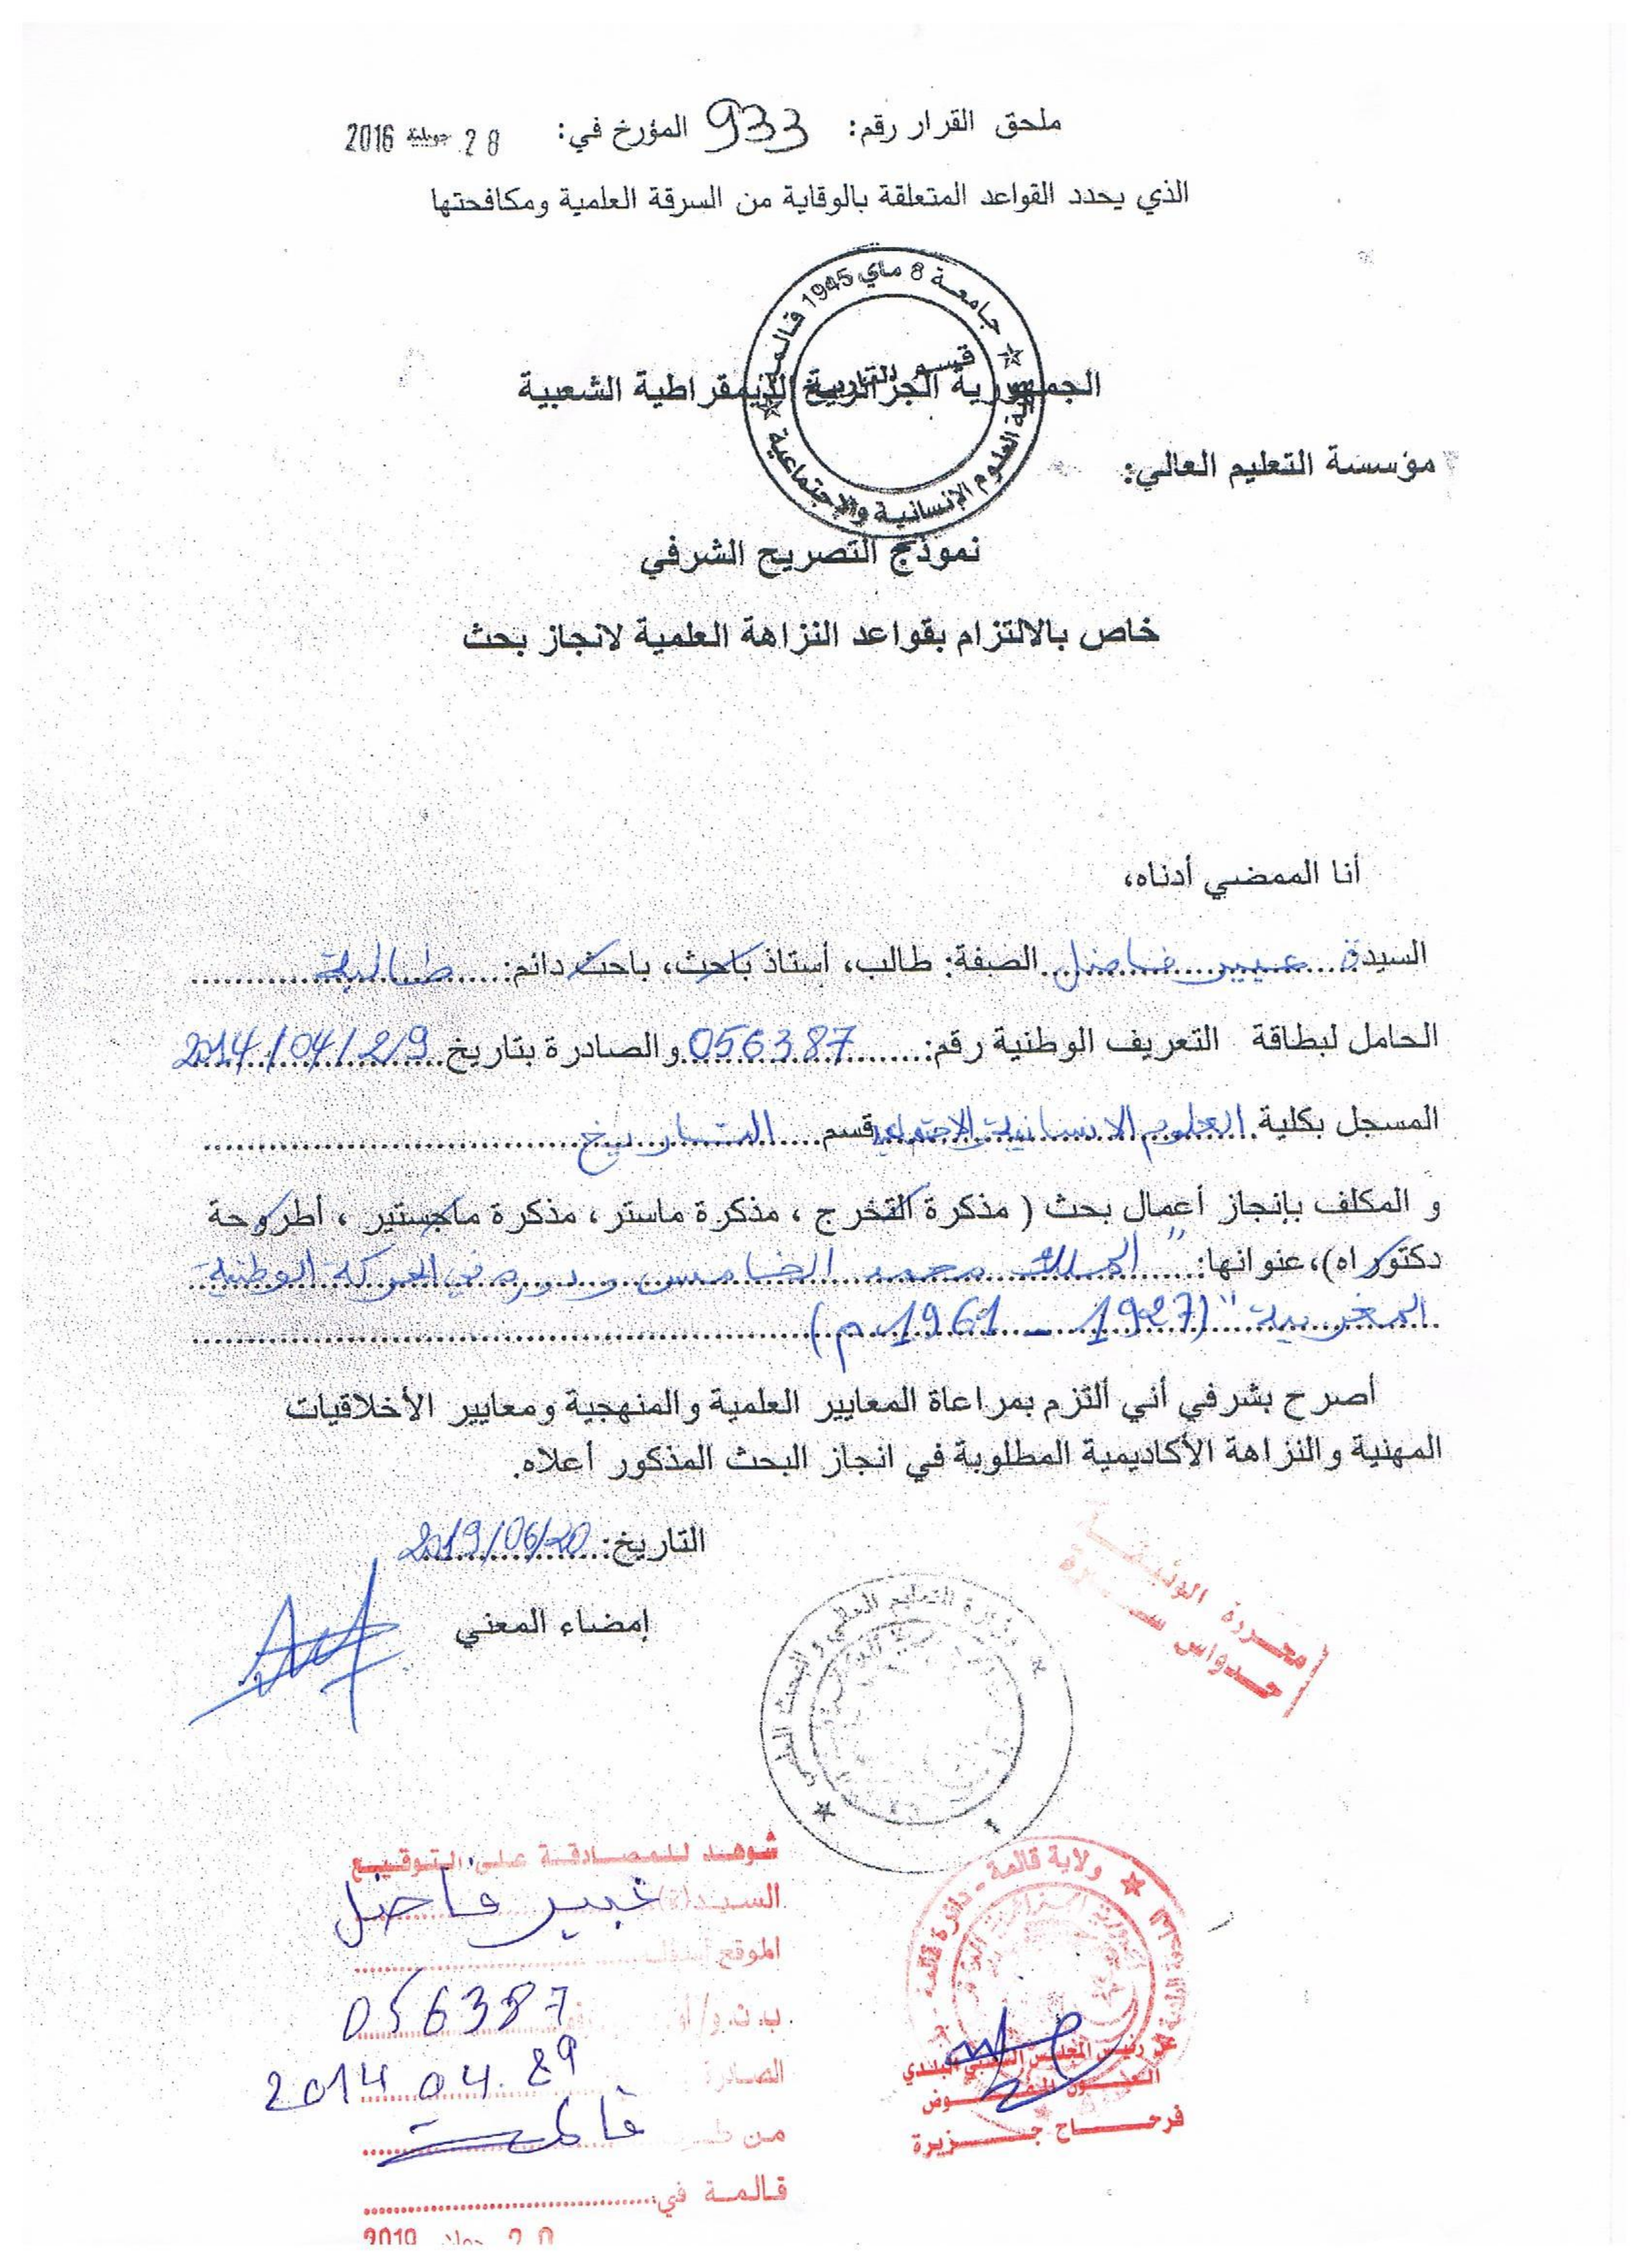 ملحق القرار رقم: 933 المؤرخ في: 28 جويلية 2016
الذي يحدد القواعد المتعلقة بالوقاية من السرقة العلمية ومكافحتها
جامعة 8 ماي 1945 قالمة
قسم التاريخ
كلية العلوم الإنسانية والإجتماعية
الجمهورية الجزائرية الديمقراطية الشعبية
مؤسسة التعليم العالي:
نموذج التصريح الشرفي
خاص بالالتزام بقواعد النزاهة العلمية لانجاز بحث
أنا الممضي أدناه،
السيدة عبير فاضل الصفة: طالب، أستاذ باحث، باحث دائم: طالبة
الحامل لبطاقة التعريف الوطنية رقم: 056387 والصادرة بتاريخ 2014/04/29
المسجل بكلية العلوم الانسانية والاجتماعية قسم التاريخ
و المكلف بإنجاز أعمال بحث ( مذكرة التخرج ، مذكرة ماستر، مذكرة ماجستير ، أطروحة
دكتوراه)، عنوانها: " الملك محمد الخامس ودوره في الحركة الوطنية
المغربية" (1927 - 1961 م)
أصرح بشرفي أني ألتزم بمراعاة المعايير العلمية والمنهجية ومعايير الأخلاقيات
المهنية والنزاهة الأكاديمية المطلوبة في انجاز البحث المذكور أعلاه.
التاريخ: 2019/06/20
إمضاء المعني
وزارة التعليم العالي والبحث العلمي
محررة الوثيقة
شوهد للمصادقة على التوقيع
السيد(ة) عبير فاضل
الموقع أسفله
ب.ت.و/ 056387
الصادرة 2014.04.29
من طرف قالمة
قالمة في
20 2019
ولاية قالمة - دائرة قالمة
عن رئيس المجلس الشعبي البلدي
العون المفوض
فرحاح جزيرة